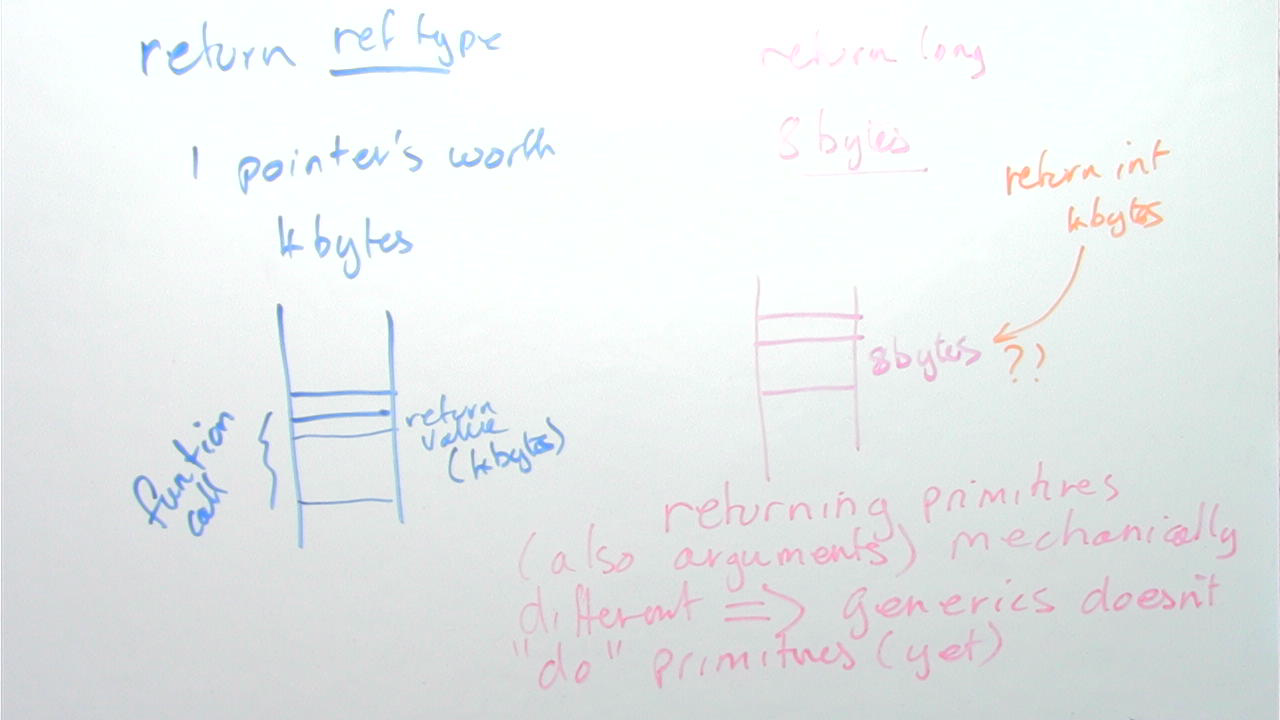 return ref type
1 pointer's worth
4 bytes
function
call
return
value
(4 bytes)
return long
8 bytes
return int
4 bytes
8 bytes
??
returning primitives
(also arguments) mechanically
different => generics doesn't
"do" primitives (yet)